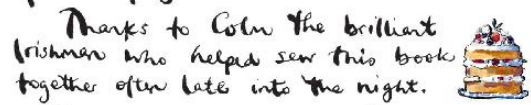 Thanks to Colm the brilliant
Irishman who helped sew this book
together often late into the night.